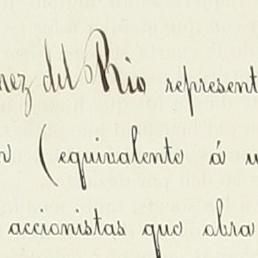 nez del Rio represent
n (equivalente á u
accionistas que obra